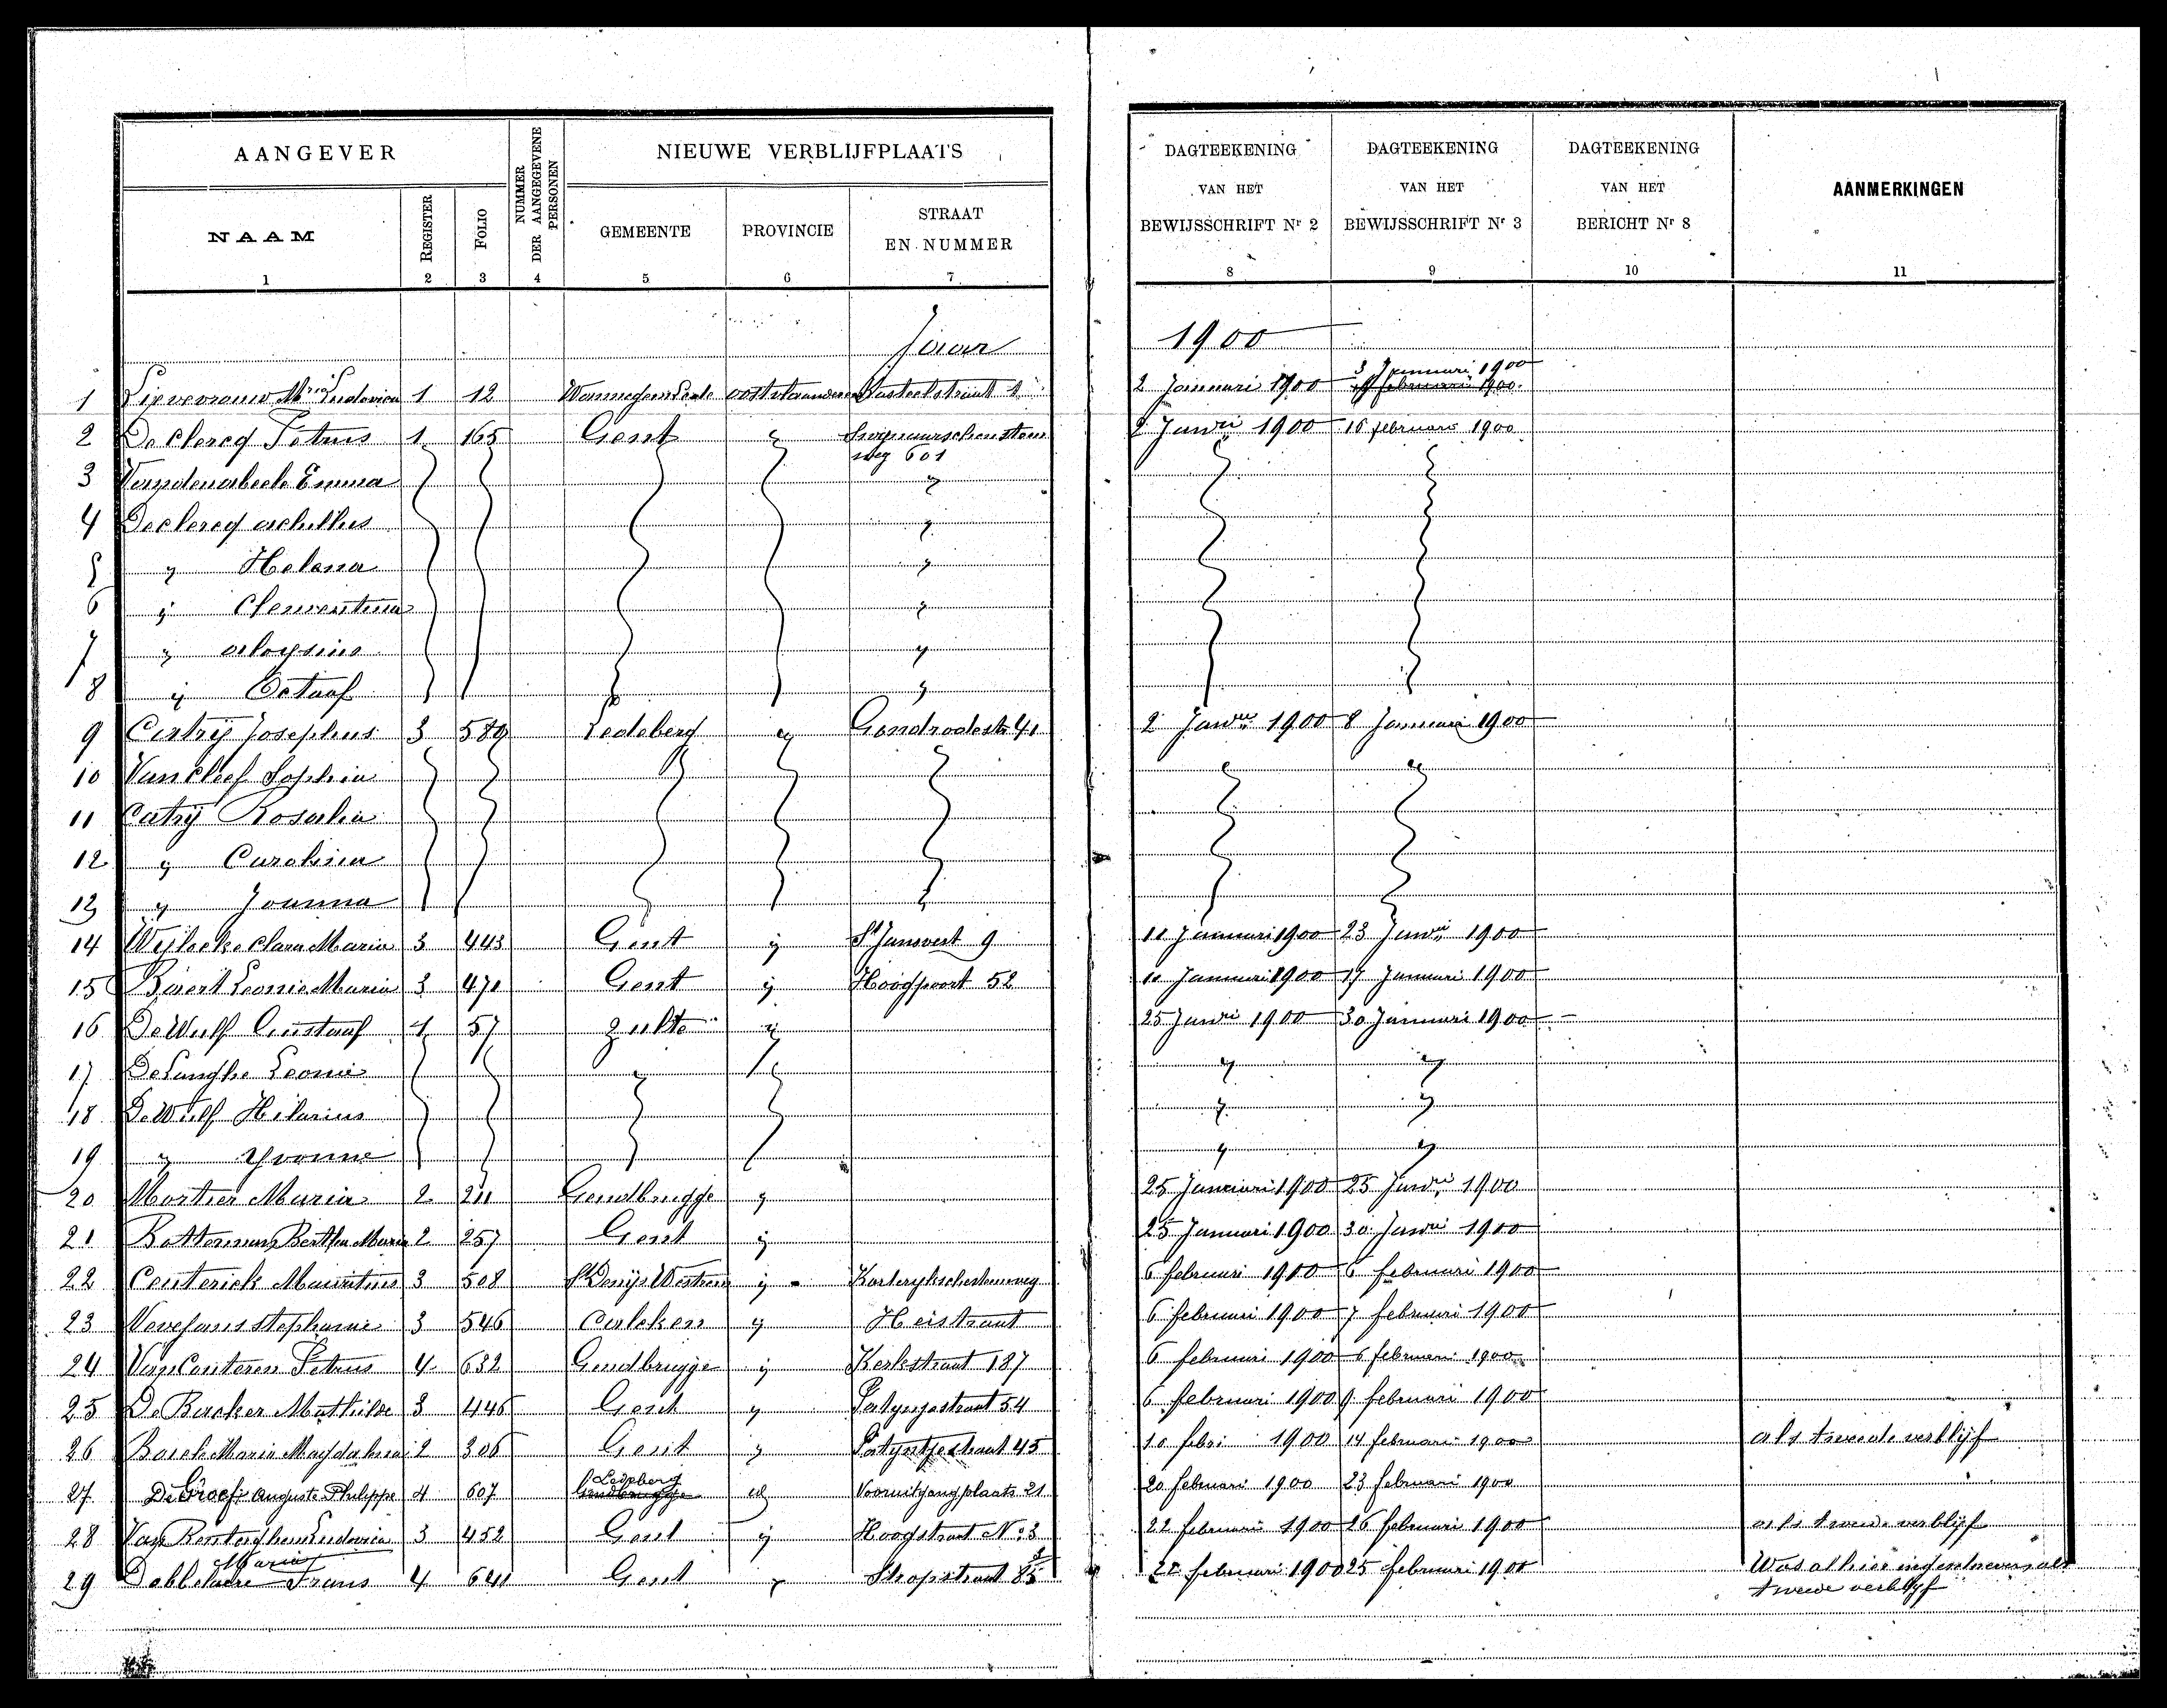 AANGEVER
NUMMER DER AANGEGEVENE PERSONEN
NIEUWE VERBLIJFPLAATS
DAGTEEKENING VAN HET BEWIJSSCHRIFT Nr 2
DAGTEEKENING VAN HET BEWIJSSCHRIFT Nr 3
DAGTEEKENING VAN HET BERICHT Nr 8
AANMERKINGEN
NAAM REGISTER FOLIO GEMEENTE PROVINCIE STRAAT EN NUMMER
1 2 3 4 5 6 7 8 9 10 11
Jaar 1900
3 Januari 1900
1 Ludovica 1 12 Oostvlaanderen Kasteelstraat 1 2 Januari 1900 februari 1900
2 Declercq Petrus 1 165 Gent " 2 Janri 1900 16 februari 1900
weg 601
3 Emma "
4 Declercq achilles "
5 " Helena "
6 " Clementina "
7 " aloysius "
8 " Octaaf "
9 Catry Josephus 3 589 Ledeberg " 41 2 Janri 1900 8 Januari 1900
10 Van Cleef Sophia " "
11 Catry Rosalia
12 " Carolina
13 " Joanna
14 Clara Maria 3 443 Gent " St Jansvest 9 10 Januari 1900 23 Janri 1900
15 Leonie Maria 3 471 Gent " Hoogpoort 52 10 Januari 1900 17 Januari 1900
16 De Wulf Gustaaf 1 57 Zulte " 25 Janri 1900 30 Januari 1900
17 De Langhe Leonie " " "
18 De Wulf Hilarius " "
19 " Yvonne " "
20 Mortier Maria 2 211 Gendbrugge " 25 Januari 1900 25 Janri 1900
21 Botterman Bertha Maria 2 257 Gent " 25 Januari 1900 30 Janri 1900
22 Ceuterick Mauritius 3 508 St Denijs Westrem " Kortrykschesteenweg 6 februari 1900 6 februari 1900
23 Stephanie 3 546 Calcken " Heistraat 6 februari 1900 7 februari 1900
24 Van Conteren Petrus 4 632 Gendbrugge " Kerkstraat 187 6 februari 1900 6 februari 1900
25 De Backer Mathilde 3 446 Gent " 54 6 februari 1900 9 februari 1900
26 Maria Magdalena 2 306 Gent " Patyntjestraat 45 10 febri 1900 14 februari 1900 als tweede verblijf
Ledeberg
27 De Groef Auguste Philippe 4 607 Gendbrugge id Vooruitgangplaats 21 20 februari 1900 23 februari 1900
28 Van Renterghem Ludovica 3 452 Gent " Hoogstraat No 3 22 februari 1900 26 februari 1900 als tweede verblijf
Maria
29 Frans 4 Gent " Stropstraat 85 februari 1900 25 februari 1900 Was alhier ingeschreven als
tweede verblijf